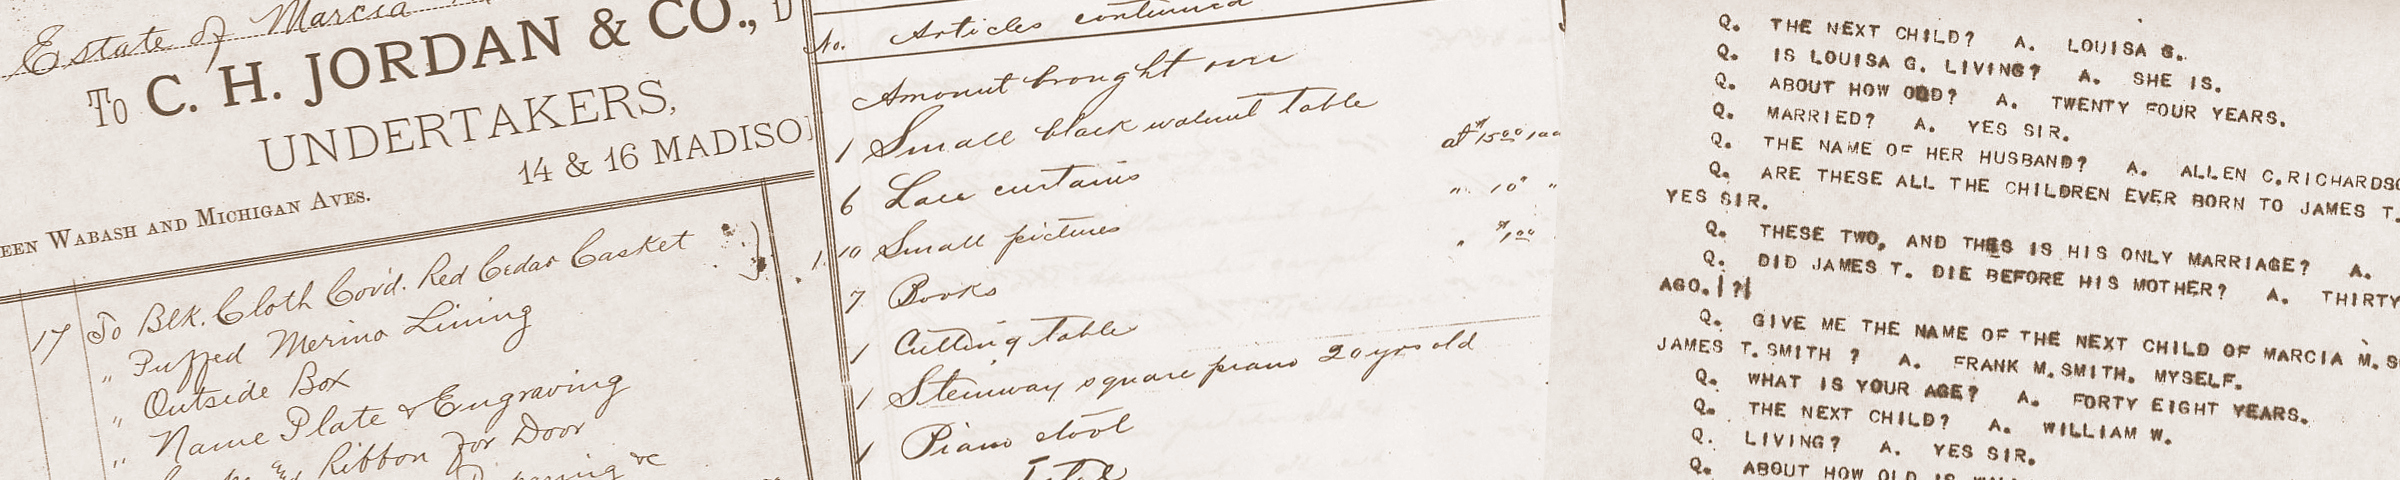 Estate of Marcia
To C. H. JORDAN & CO., D
UNDERTAKERS,
14 & 16 MADISO
EEN WABASH AND MICHIGAN AVES.
17 To Blk. Cloth Cov'd. Red Cedar Casket
" Puffed Merino Lining
" Outside Box
" Name Plate & Engraving
Ribbon for Door
&c
No. Articles continued
Amount brought over
1 Small black walnut table
6 Lace curtains at $15.00
10 Small pictures " 10 "
7 Books " $1.00
1 Cutting table
1 Steinway square piano 20 yrs old
1 Piano stool
Total
Q. THE NEXT CHILD? A. LOUISA G.
Q. IS LOUISA G. LIVING? A. SHE IS.
Q. ABOUT HOW OLD? A. TWENTY FOUR YEARS.
Q. MARRIED? A. YES SIR.
Q. THE NAME OF HER HUSBAND? A. ALLEN C. RICHARDSO
Q. ARE THESE ALL THE CHILDREN EVER BORN TO JAMES T.
YES SIR.
Q. THESE TWO, AND THIS IS HIS ONLY MARRIAGE? A.
Q. DID JAMES T. DIE BEFORE HIS MOTHER? A. THIRTY
AGO.
Q. GIVE ME THE NAME OF THE NEXT CHILD OF MARCIA M. S
JAMES T. SMITH ? A. FRANK M. SMITH. MYSELF.
Q. WHAT IS YOUR AGE? A. FORTY EIGHT YEARS.
Q. THE NEXT CHILD? A. WILLIAM W.
Q. LIVING? A. YES SIR.
Q. ABOUT HOW OLD IS